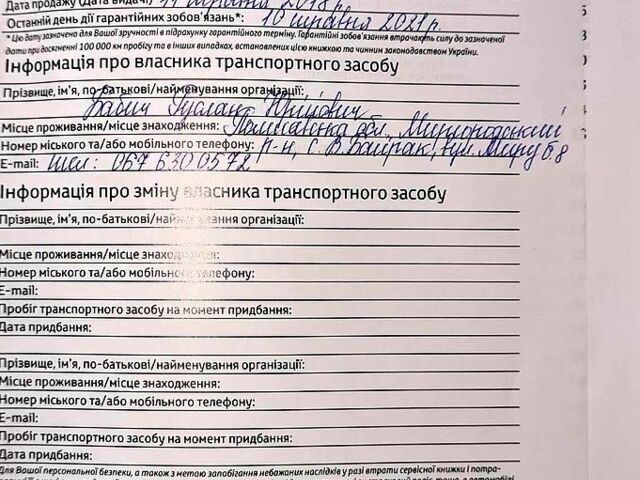 Дата продажу (Дата видачі) 11 травня 2018 р.
Останній день дії гарантійних зобов'язань*: 10 травня 2021 р.
* Цю дату зазначено для Вашої зручності в підрахунку гарантійного терміну. Гарантійні зобов'язання втрачають силу до зазначеної
дати при досягненні 100 000 км пробігу та в інших випадках, встановлених цією книжкою та чинним законодавством України.
Інформація про власника транспортного засобу
Прізвище, ім'я, по-батькові/найменування організації:
Бабич Руслан Юрійович
Місце проживання/місце знаходження: Полтавська обл., Миргородський
Номер міського та/або мобільного телефону: р-н, с. В. Байрак, вул. Миру б. 8
E-mail: тел: 067 630 05 72
Інформація про зміну власника транспортного засобу
Прізвище, ім'я, по-батькові/найменування організації:
Місце проживання/місце знаходження:
Номер міського та/або мобільного телефону:
E-mail:
Пробіг транспортного засобу на момент придбання:
Дата придбання:
Прізвище, ім'я, по-батькові/найменування організації:
Місце проживання/місце знаходження:
Номер міського та/або мобільного телефону:
E-mail:
Пробіг транспортного засобу на момент придбання:
Дата придбання:
Для Вашої персональної безпеки, а також з метою запобігання небажаних наслідків у разі втрати сервісної книжки і потра-